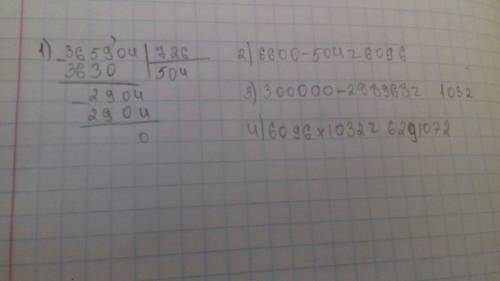 1) 365904 | 726
3630 | 504
- 2904
2904
0
2) 6600-504=6096
3) 300000-298968= 1032
4) 6096×1032= 6291072